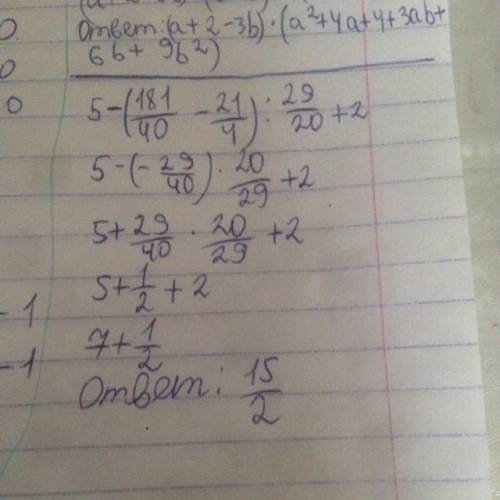 Ответ: (a+2-3b)·(a²+4a+4+3ab+
6b+9b²)
5-(181/40 - 21/4) : 29/20 +2
5-(-29/40)·20/29 +2
5+29/40 · 20/29 +2
5+1/2+2
7+1/2
Ответ: 15/2